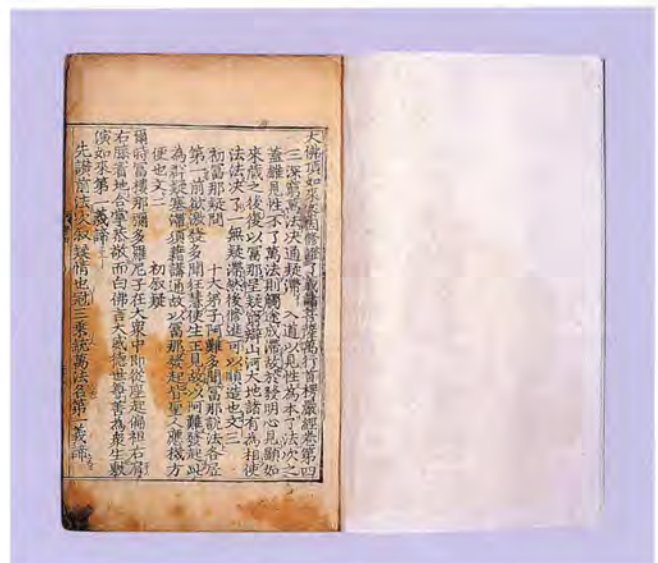 大佛頂如來密因修證了義諸菩薩萬行首楞嚴經卷第四
三深窮萬法决通疑滯 入道以見性爲本了法次之
蓋雖見性不了萬法則觸途成滯故於發明心見顯如
來藏之後復以富那呈疑窮辯山河大地諸有爲相使
法法决了一無疑滯然後修進可以順造也文三
初富那疑問 十大弟子阿難多聞富那說法各居
第一前欲激發多聞狂慧使生正見故以阿難發起此
爲辟疑塞滯須藉講通故以富那發起皆聖人應機方
便也文二 初叙疑
爾時富樓那彌多羅尼子在大衆中即從座起偏袒右肩
右膝着地合掌恭敬而白佛言大威德世尊善爲衆生敷
演如來第一義諦
先讃前法次叙疑情也冠三乘統萬法名第一義諦